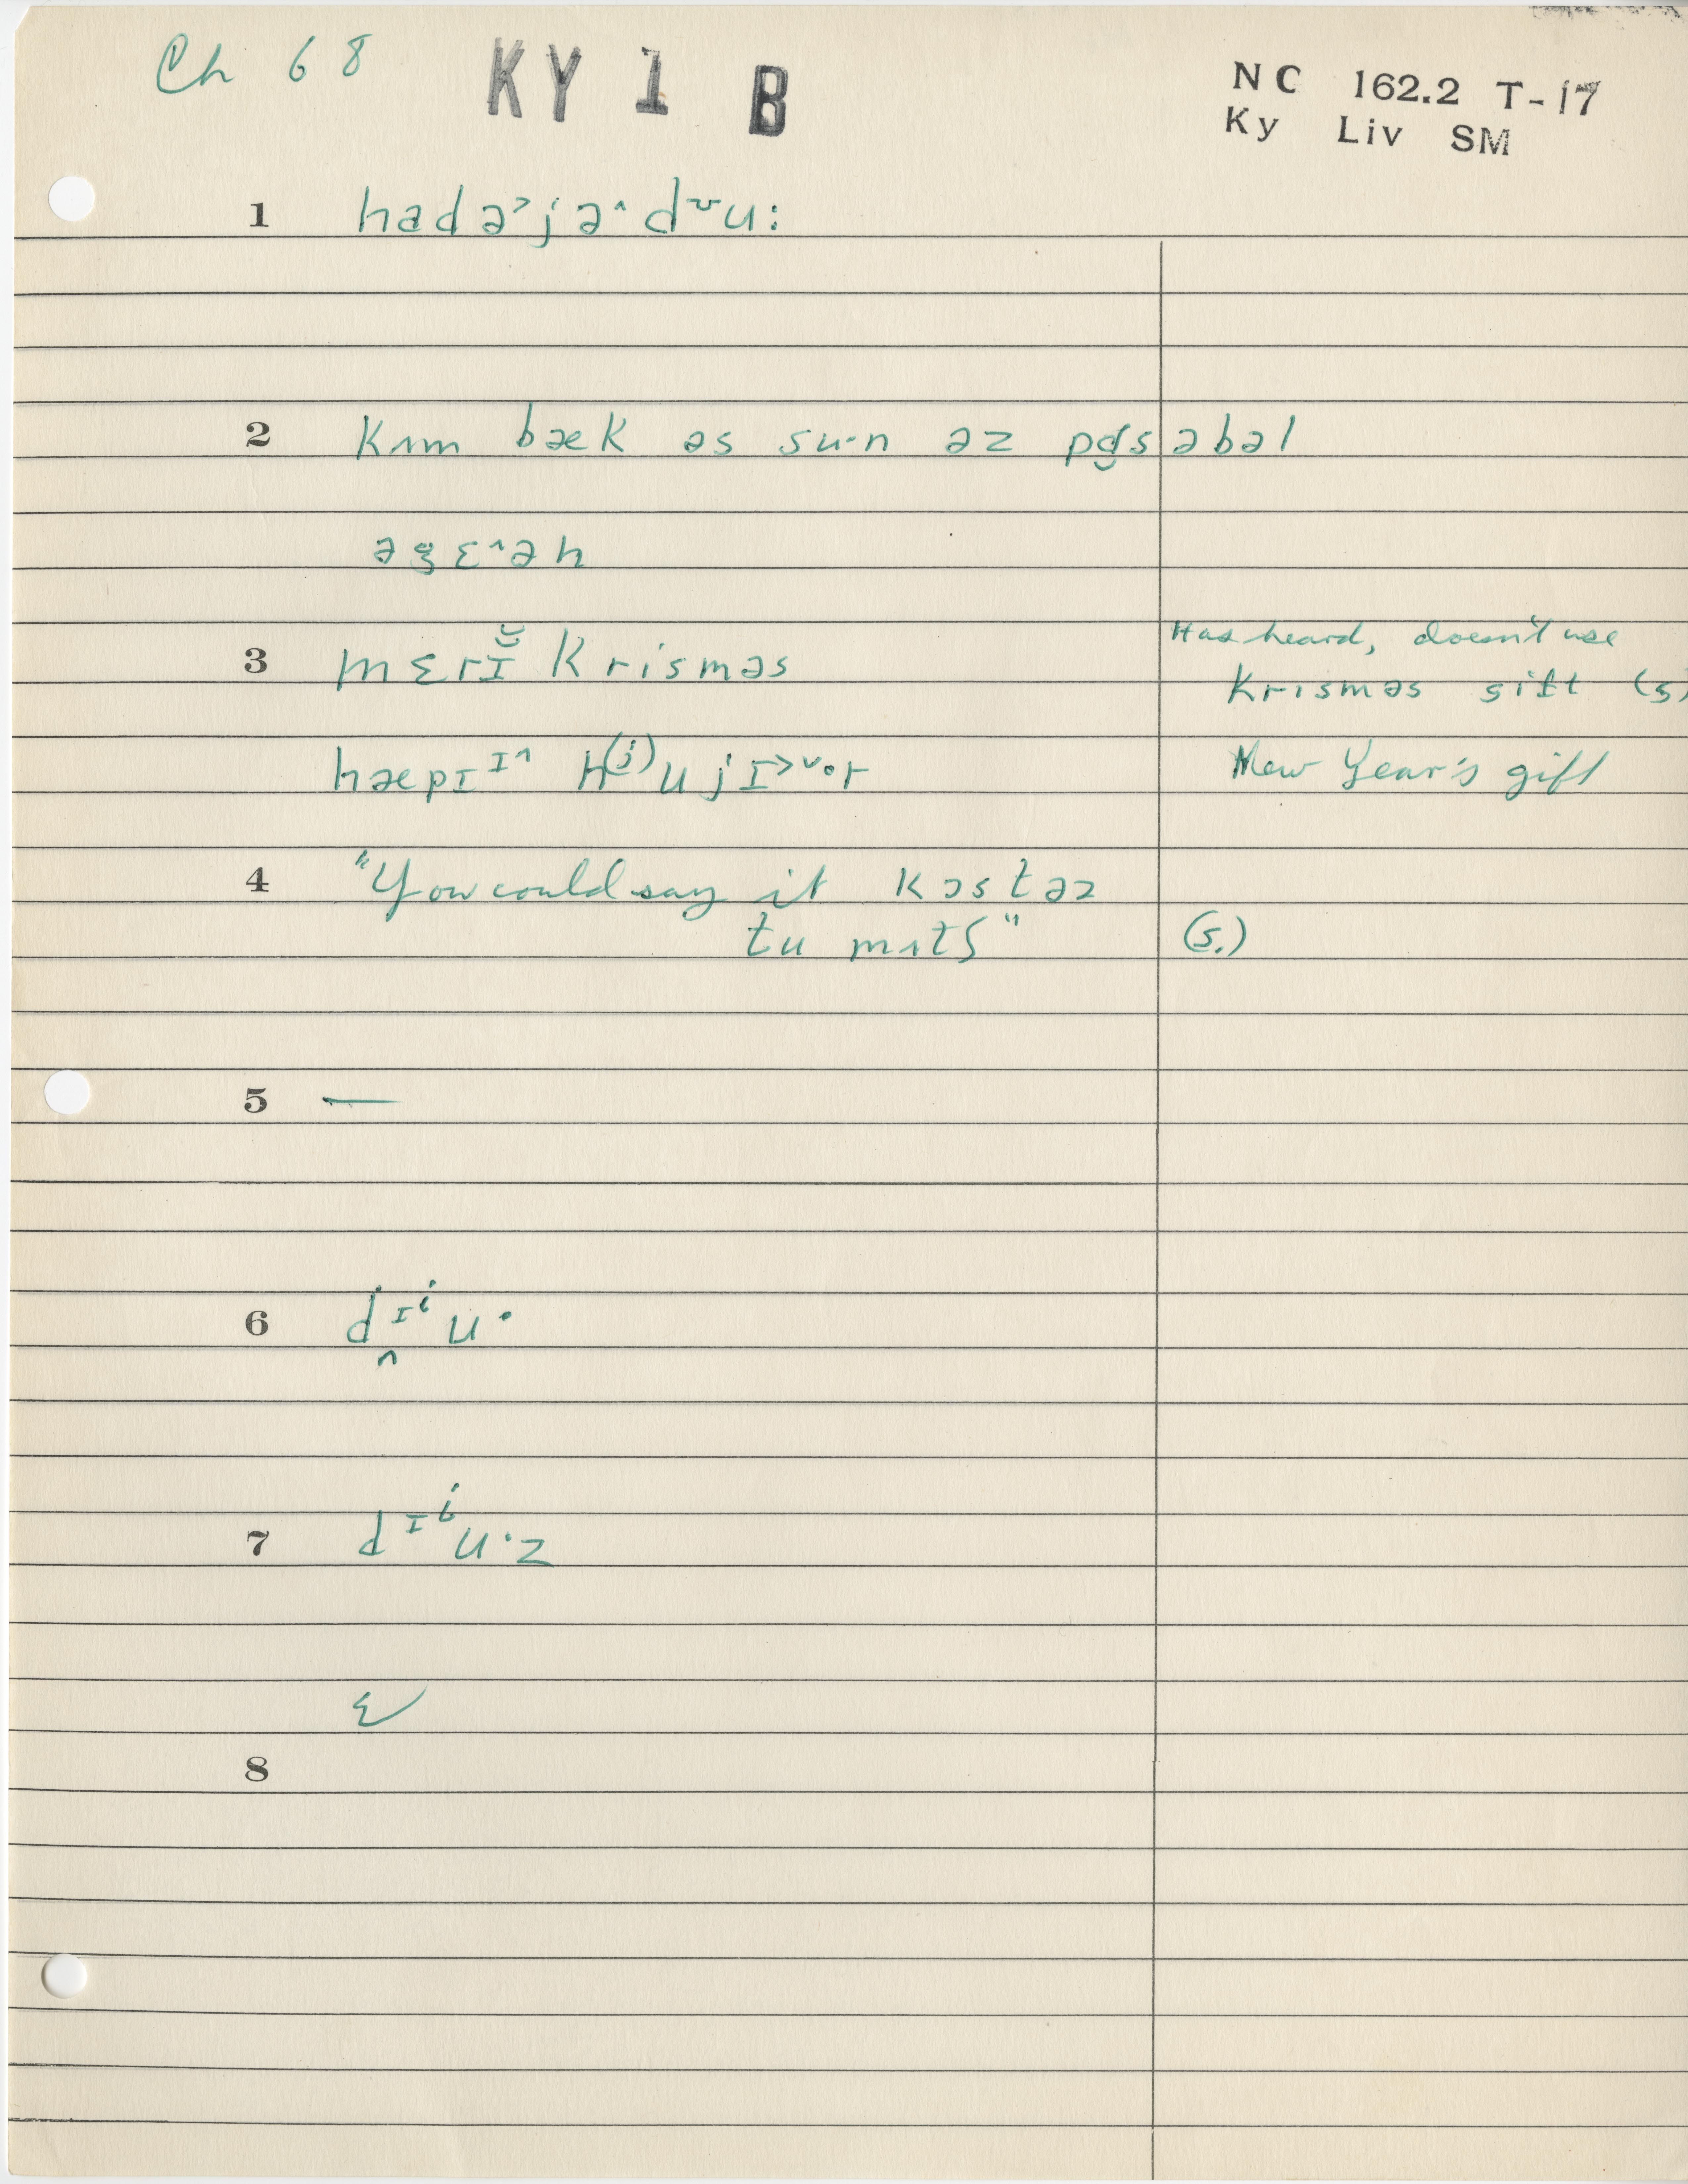 Ch 68 KY 1 B
NC 162.2 T-17
Ky Liv SM
1 hadə˃jə˄d˷u:
2 kʌm bæk əs su·n əz pɑsəbəl
əgɛ˄ən
3 mɛrɪ̆ krisməs
Has heard, doesn't use
krɪsməs gift (s)
hæpɪɪ˄ n⁽ʲ⁾ujɪ˃˅·r
New Year's gift
4 "You could say it kɔstəz
tu mʌtʃ" (s.)
5 —
6 dɪⁱu·
7 dɪⁱu·z
8